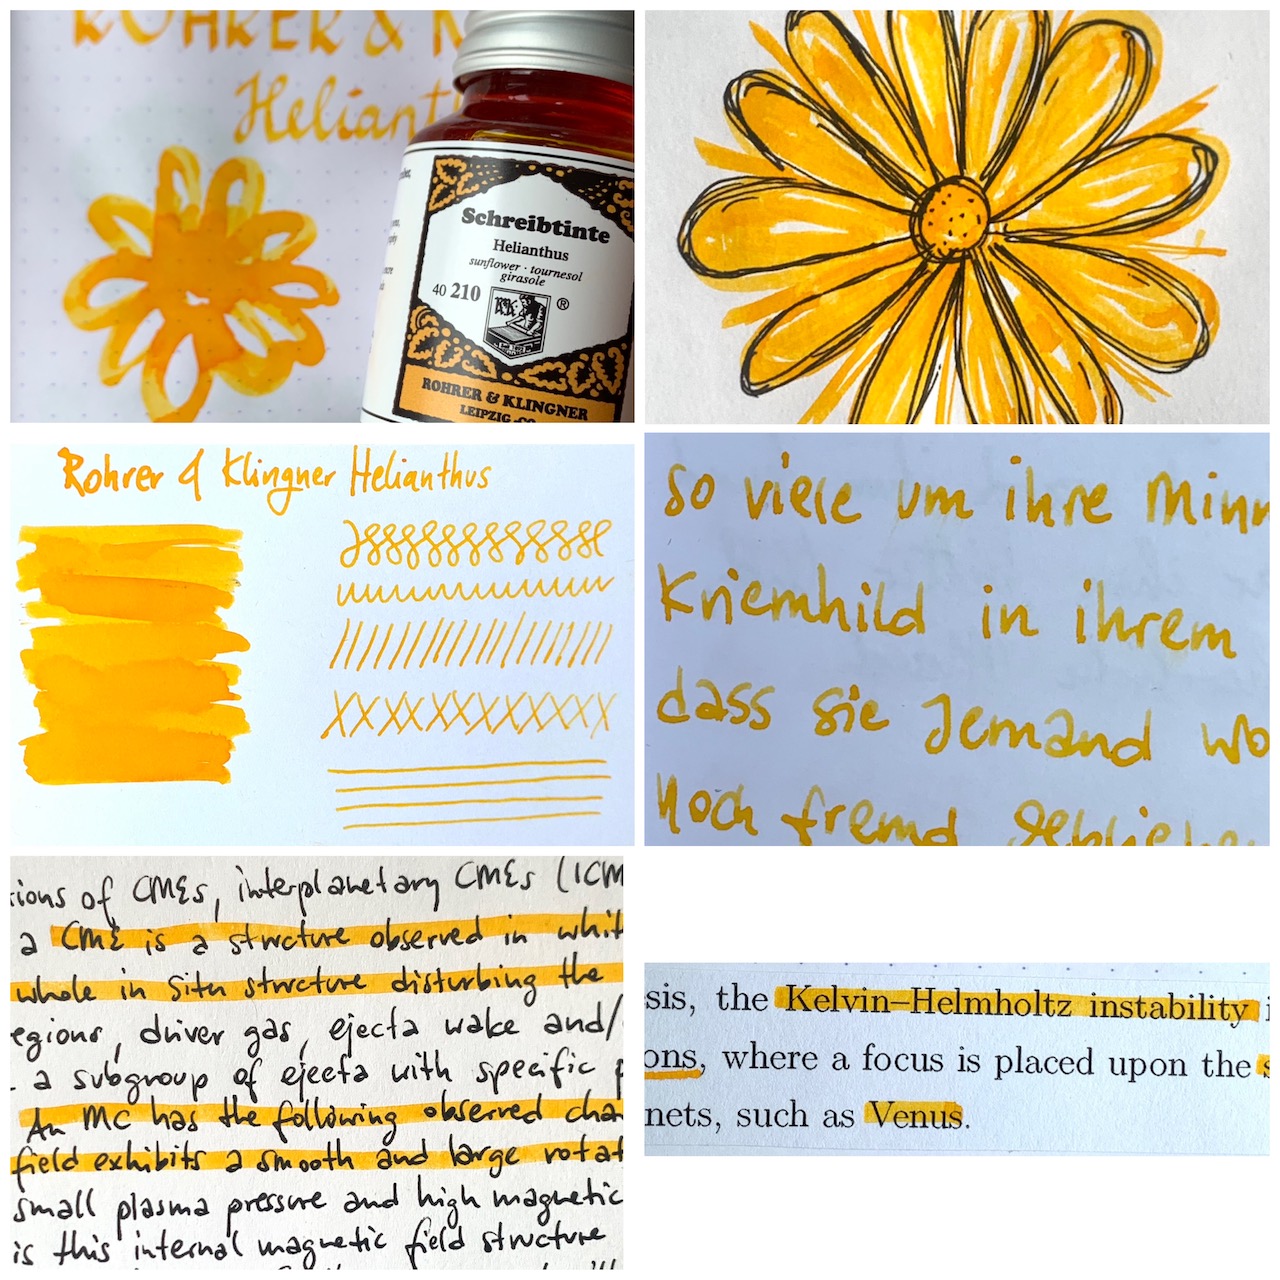 ROHRER & K
Heliant
Schreibtinte
Helianthus
sunflower · tournesol
girasole
40 210
R&K
®
ROHRER & KLINGNER
LEIPZIG
Rohrer & Klingner Helianthus
so viele um ihre Minn
Kriemhild in ihrem
dass sie Jemand wo
Noch fremd gebliebe
tions of CMEs, interplanetary CMEs (ICM
a CME is a structure observed in whit
whole in situ structure disturbing the
egions, driver gas, ejecta wake and/
a subgroup of ejecta with specific
An MC has the following observed cha
field exhibits a smooth and large rotat
small plasma pressure and high magnetic
is this internal magnetic field structure
sis, the Kelvin–Helmholtz instability i
ons, where a focus is placed upon the s
nets, such as Venus.